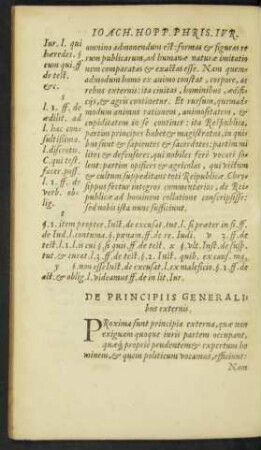 IOACH. HOPP. PHRIS. IVR.
Iur. l. qui
hæredes. §
cum qui. ff
de test.
&c.
1
l. 1. ff. de
ædilit. ad
l. hac con
sultissima.
l. discretis.
C. qui test.
facer. poss.
l. 1. ff. de
verb. ob-
lig.
omnino admonendum est: formas & figuras re
rum publicarum, ad humanæ naturæ imitatio
nem comparatas & exactas esse. Nam quem-
admodum homo ex animo constat, corpore, at
rebus externis: ita ciuitas, hominibus, ædifi-
cijs, & agris continetur. Et rursum, quemad-
modum animus rationem, animositatem, &
cupiditatem in se continet: ita Respublica,
partim principes habet & magistratus, in quibus
sunt & sapientes & sacerdotes: partim mi
lites & defensores, qui nobiles ferè vocari so
lent: partim opifices & agricolas, qui victum
& cultum suppeditant toti Reipublicæ. Chry
sippus festus integros commentarios, de Rei
publicæ ad hominem collatione conscripsisse:
sed nobis ista mus sufficiunt.
§ 1. item propter, Inst. de excusat. tut. l. si prætor in fi. ff.
de Iud. l. contume. §. pœnam. ff. de re. Iudi.
test. l. 1. l. is cui §. si quis ff. de test.
tut. & curat. l. 2. ff. de test. §. 2. Inst. quib. ex caus. ma.
§ non esse Inst. de excusat. l. ex maleficio. § 1. ff. de
act. & oblig. l. videamus ff. de in lit. Iur.
DE PRINCIPIIS GENERALI
bus externis.
PRoxima sunt principia externa, quæ non
exiguam quoque iuris partem occupant,
quæq; propriè prudentem & expertum ho
minem, & quem politicum vocamus, efficiunt:
Nam